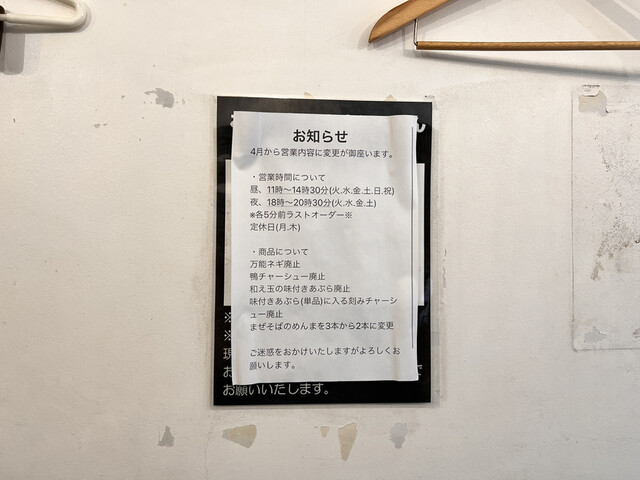 お知らせ
4月から営業内容に変更が御座います。
・営業時間について
昼、11時〜14時30分(火.水.金.土.日.祝)
夜、18時〜20時30分(火.水.金.土)
※各5分前ラストオーダー※
定休日(月.木)
・商品について
万能ネギ廃止
鴨チャーシュー廃止
和え玉の味付きあぶら廃止
味付きあぶら(単品)に入る刻みチャーシ
ュー廃止
まぜそばのめんまを3本から2本に変更
ご迷惑をおかけいたしますがよろしくお
願いします。
※
※
現
お
お願いいたします。